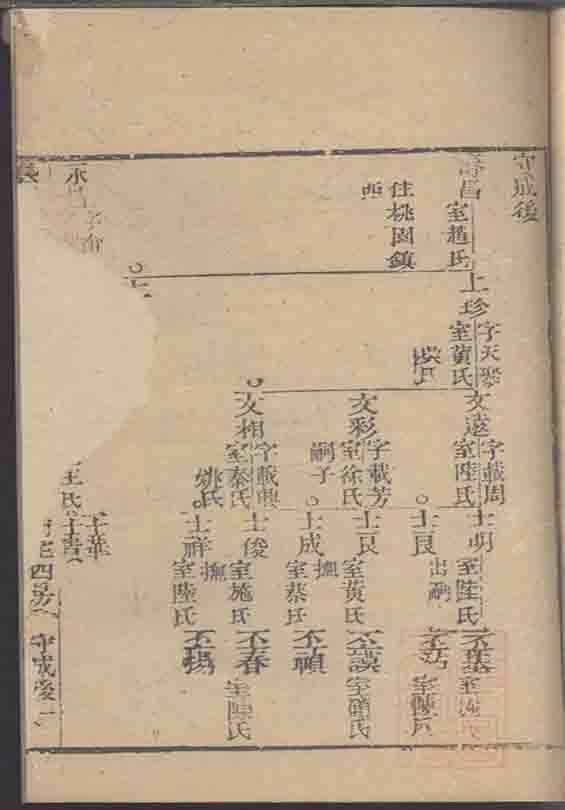 守成後
壽昌
室趙氏
住桃園鎮
西
士珍
字天聚
室黃氏
侯氏
文遠
字載周
室陸氏
文彩
字載芳
室徐氏
嗣子
文相
字載興
室秦氏
姚氏
士明
室陸氏
士良
出嗣
士良
室黃氏
士成
撫
室蔡氏
士俊
室施氏
士祥
撫
室陸氏
丕基
室
丕
室陳氏
丕謨
室顧氏
丕禎
丕春
室陳氏
丕揚
永昌
王氏
士華
四房
守成後一